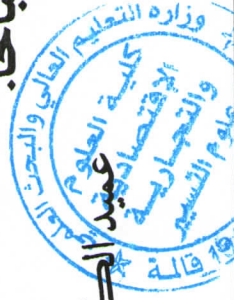 وزارة التعليم العالي والبحث العلمي
كلية العلوم
الإقتصادية
والتجارية
وعلوم التسيير
قالمة
عميد